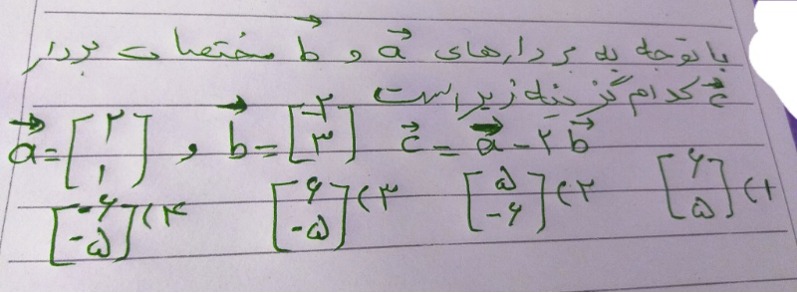 با توجه به بردارهای a⃗ و b⃗ مختصات بردار
c⃗ کدام گزینه زیر است
a⃗ = [۲ ۱] , b⃗ = [-۲ ۳] c⃗ = a⃗ - ۲b⃗
۱) [۶ ۵] ۲) [۵ -۶] ۳) [۶ -۵] ۴) [-۶ -۵]